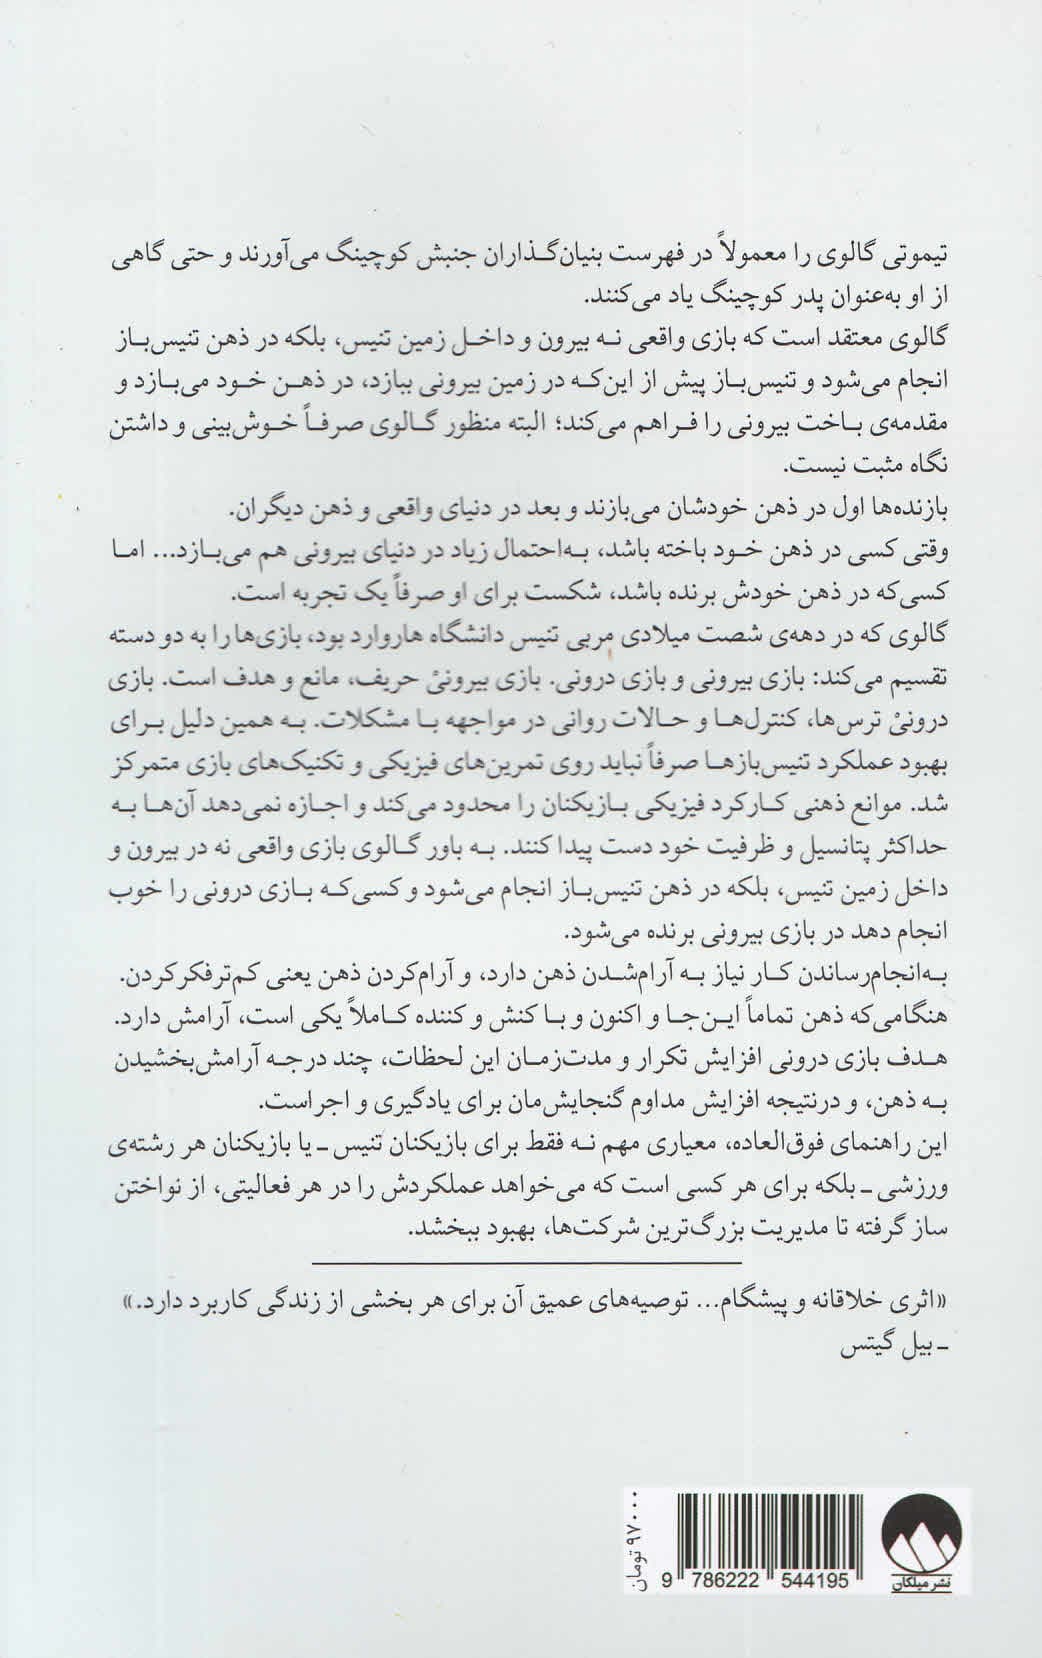 تیموتی گالوی را معمولاً در فهرست بنیان‌گذاران جنبش کوچینگ می‌آورند و حتی گاهی
از او به‌عنوان پدر کوچینگ یاد می‌کنند.
گالوی معتقد است که بازی واقعی نه بیرون و داخل زمین تنیس، بلکه در ذهن تنیس‌باز
انجام می‌شود و تنیس‌باز پیش از این‌که در زمین بیرونی ببازد، در ذهن خود می‌بازد و
مقدمه‌ی باخت بیرونی را فراهم می‌کند؛ البته منظور گالوی صرفاً خوش‌بینی و داشتن
نگاه مثبت نیست.
بازنده‌ها اول در ذهن خودشان می‌بازند و بعد در دنیای واقعی و ذهن دیگران.
وقتی کسی در ذهن خود باخته باشد، به‌احتمال زیاد در دنیای بیرونی هم می‌بازد... اما
کسی‌که در ذهن خودش برنده باشد، شکست برای او صرفاً یک تجربه است.
گالوی که در دهه‌ی شصت میلادی مربی تنیس دانشگاه هاروارد بود، بازی‌ها را به دو دسته
تقسیم می‌کند: بازی بیرونی و بازی درونی. بازی بیرونیْ حریف، مانع و هدف است. بازی
درونیْ ترس‌ها، کنترل‌ها و حالات روانی در مواجهه با مشکلات. به همین دلیل برای
بهبود عملکرد تنیس‌بازها صرفاً نباید روی تمرین‌های فیزیکی و تکنیک‌های بازی متمرکز
شد. موانع ذهنی کارکرد فیزیکی بازیکنان را محدود می‌کند و اجازه نمی‌دهد آن‌ها به
حداکثر پتانسیل و ظرفیت خود دست پیدا کنند. به باور گالوی بازی واقعی نه در بیرون و
داخل زمین تنیس، بلکه در ذهن تنیس‌باز انجام می‌شود و کسی‌که بازی درونی را خوب
انجام دهد در بازی بیرونی برنده می‌شود.
به‌انجام‌رساندن کار نیاز به آرام‌شدن ذهن دارد، و آرام‌کردن ذهن یعنی کم‌تر فکرکردن.
هنگامی‌که ذهن تماماً این‌جا و اکنون و با کنش و کننده کاملاً یکی است، آرامش دارد.
هدف بازی درونی افزایش تکرار و مدت‌زمان این لحظات، چند درجه آرامش‌بخشیدن
به ذهن، و درنتیجه افزایش مداوم گنجایش‌مان برای یادگیری و اجراست.
این راهنمای فوق‌العاده، معیاری مهم نه فقط برای بازیکنان تنیس ـ یا بازیکنان هر رشته‌ی
ورزشی ـ بلکه برای هر کسی است که می‌خواهد عملکردش را در هر فعالیتی، از نواختن
ساز گرفته تا مدیریت بزرگ‌ترین شرکت‌ها، بهبود ببخشد.
«اثری خلاقانه و پیشگام... توصیه‌های عمیق آن برای هر بخشی از زندگی کاربرد دارد.»
ـ بیل گیتس
۹۷۰۰۰ تومان
9 786222 544195
نشر میلکان